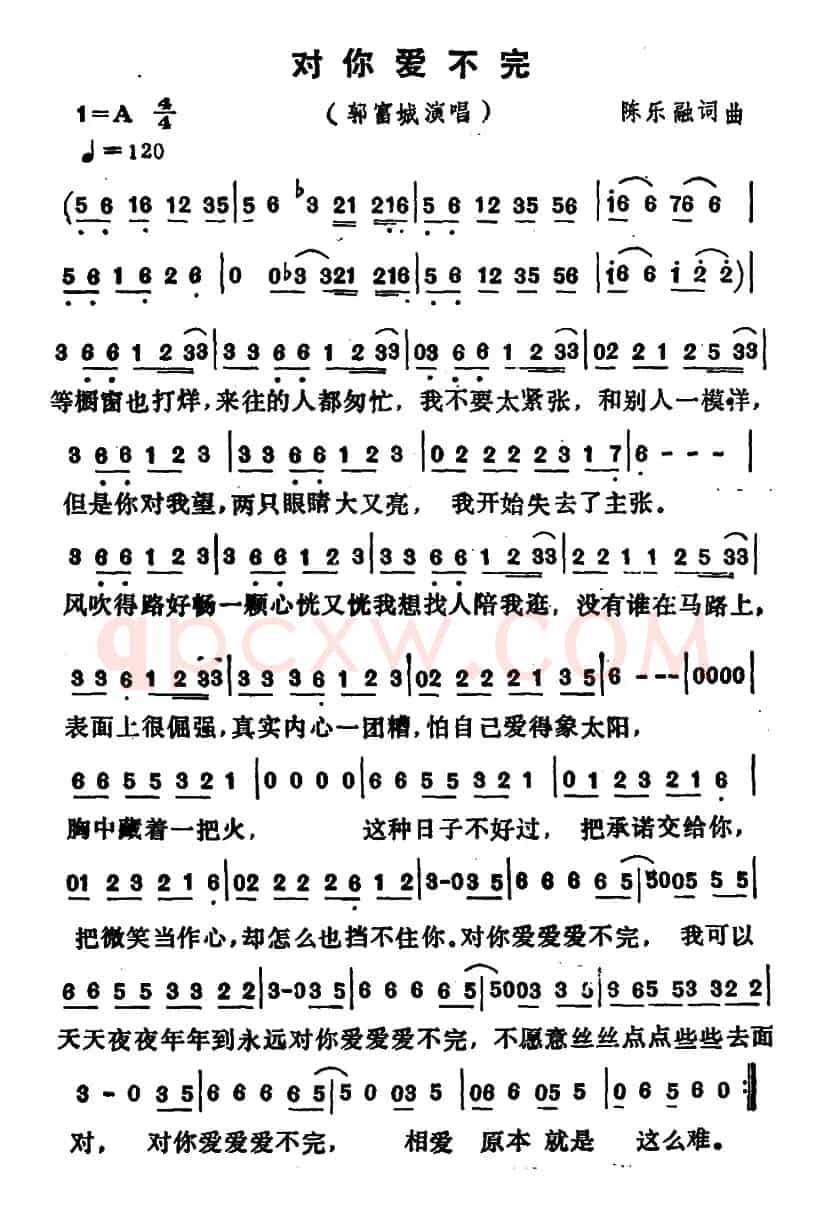 对你爱不完
1=A 4/4 （郭富城演唱） 陈乐融词曲
♩=120
(5 6 16 12 35|5 6 ♭3 21 216|5 6 12 35 56|i6 6 76 6|
5 6 1 6 2 6|0 0♭3 321 216|5 6 12 35 56|i6 6 i 2 2)|
3 6 6 1 2 33|3 3 6 6 1 2 33|03 6 6 1 2 33|02 2 1 2 5 33|
等橱窗也打烊，来往的人都匆忙，我不要太紧张，和别人一模样，
3 6 6 1 2 3|3 3 6 6 1 2 3|0 2 2 2 2 3 1 7|6 - - -|
但是你对我望，两只眼睛大又亮，我开始失去了主张。
3 6 6 1 2 3|3 3 6 6 1 2 3|3 3 6 6 1 2 33|2 2 1 1 2 5 33|
风吹得路好畅一颗心恍又恍我想找人陪我逛，没有谁在马路上，
qpcxw.COM
3 3 6 1 2 33|3 3 3 6 1 2 3|02 2 2 2 1 3 5|6 - - -|0000|
表面上很倔强，真实内心一团糟，怕自己爱得象太阳，
6 6 5 5 3 2 1|0 0 0 0|6 6 5 5 3 2 1|0 1 2 3 2 1 6|
胸中藏着一把火， 这种日子不好过， 把承诺交给你，
01 2 3 2 1 6|02 2 2 2 6 1 2|3-03 5|6 6 6 6 6 5|5005 5 5|
把微笑当作心，却怎么也挡不住你。对你爱爱爱不完， 我可以
6 6 5 5 3 3 2 2|3-03 5|6 6 6 6 6 5|5003 3 5|3 65 53 32 2|
天天夜夜年年到永远对你爱爱爱不完，不愿意丝丝点点些些去面
3 - 0 3 5|6 6 6 6 6 5|5 0 03 5|06 6 05 5|0 5 6 0:|
对， 对你爱爱爱不完， 相爱 原本 就是 这么难。